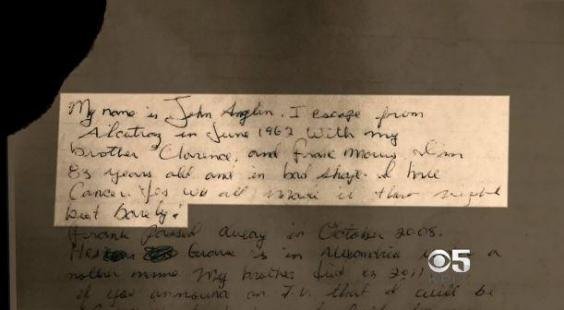 My name is John Anglin. I escape from
Alcatraz in June 1962 With my
brother Clarence, and Frank Morris. I'm
83 years old and in bad shape. I have
Cancer. Yes we all made it that night
but barely!
Frank passed away in October 2008.
His Grave is in Alexandria a
My brother died in 2011
If you announce on T.V. that I will be
5